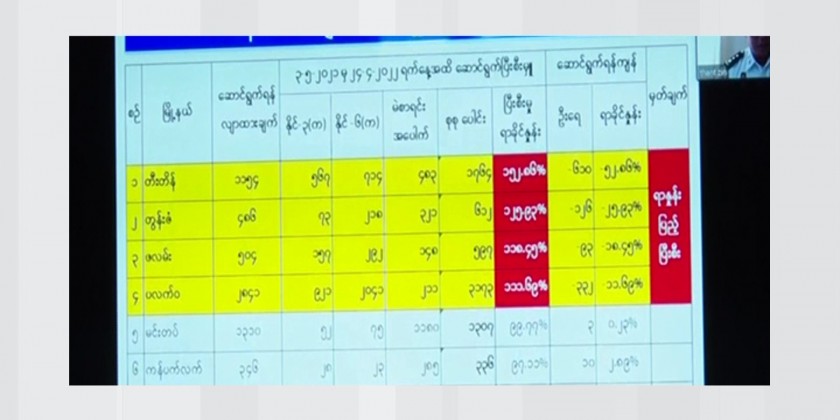 ၃-၅-၂၀၂၁ မှ ၂၄-၄-၂၀၂၂ ရက်နေ့အထိ ဆောင်ရွက်ပြီးစီးမှု ဆောင်ရွက်ရန်ကျန်
စဉ် မြို့နယ် ဆောင်ရွက်ရန် လျာထားချက် နိုင်-၃(က) နိုင်-၆(က) မဲစာရင်း အပေါက် စုစုပေါင်း ပြီးစီးမှု ရာခိုင်နှုန်း ဦးရေ ရာခိုင်နှုန်း မှတ်ချက်
၁ တီးတိန် ၁၁၅၄ ၅၆၇ ၇၁၄ ၄၈၃ ၁၇၆၄ ၁၅၂.၈၆% -၆၁၀ -၅၂.၈၆%
၂ တွန်းဇံ ၄၈၆ ၇၃ ၂၁၈ ၃၂၁ ၆၁၂ ၁၂၅.၉၃% -၁၂၆ -၂၅.၉၃%
၃ ဖလမ်း ၅၀၄ ၁၅၇ ၂၉၂ ၁၄၈ ၅၉၇ ၁၁၈.၄၅% -၉၃ -၁၈.၄၅%
၄ ပလက်ဝ ၂၈၄၁ ၉၂၁ ၂၀၄၁ ၂၁၁ ၃၁၇၃ ၁၁၁.၆၉% -၃၃၂ -၁၁.၆၉%
ရာနှုန်း
ပြည့်
ပြီးစီး
၅ မင်းတပ် ၁၃၁၀ ၅၂ ၇၅ ၁၁၈၀ ၁၃၀၇ ၉၉.၇၇% ၃ ၀.၂၃%
၆ ကန်ပက်လက် ၃၄၆ ၂၈ ၂၃ ၂၈၅ ၃၃၆ ၉၇.၁၁% ၁၀ ၂.၈၉%